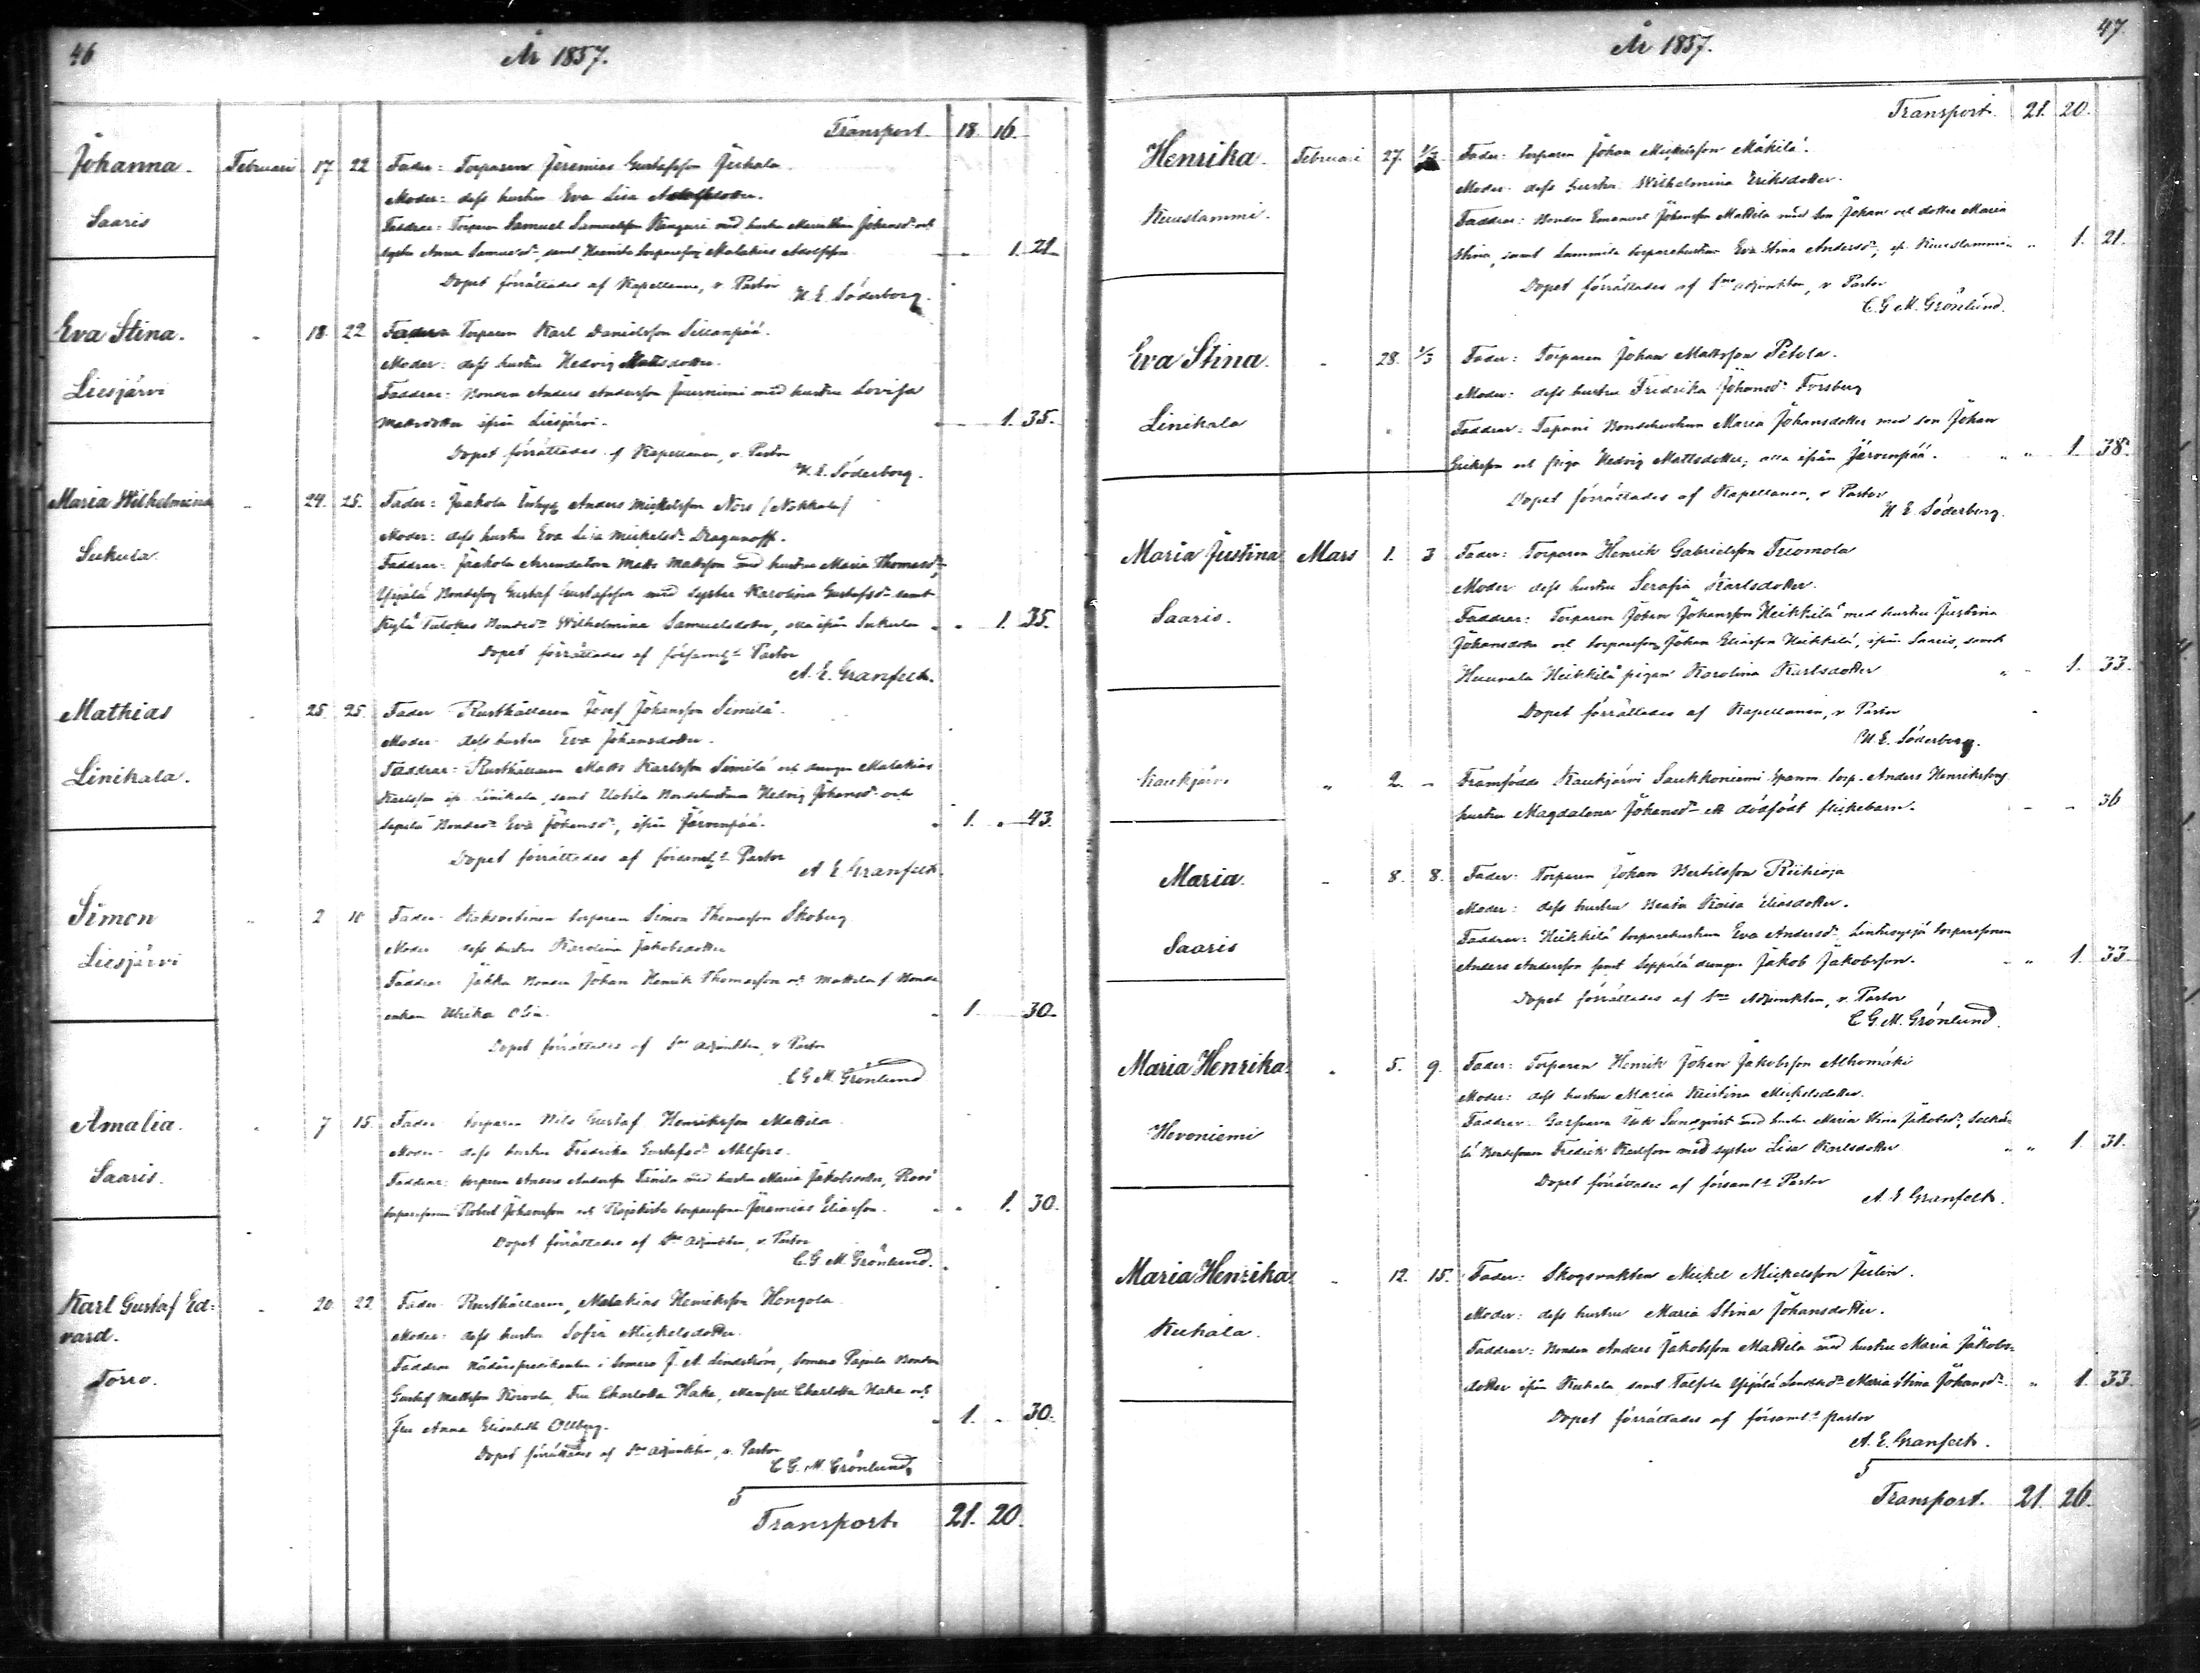 46
År 1857.
Transport. 18. 16.
Johanna. Februari 17 22 Fader: Torparen Jeremias Gustafsson
Moder: dess hustru Eva Lisa Adolfsdotter.
Saaris
Faddrar: Torparen Samuel Samuelsson med hustru Johansdr och
syster Anna Samuelsdr, samt torpareson Malakias Adolfsson 1. 21
Dopet förrättades af Kapellanen, v. Pastor
N. E. Söderborg.
Eva Stina. " 18. 22 Fader Torparen Karl Danielsson Sillanpää.
Moder: dess hustru Hedvig Mattsdotter.
Liesjärvi
Faddrar: Bonden Anders Andersson med hustru Lovisa
Mattsdotter ifrån Liesjärvi. 1. 35.
Dopet förrättades af Kapellanen, v. Pastor
N. E. Söderborg.
Maria Wilhelmina " 24. 25. Fader: Jaakola Anders Mickelsson Nors (Nokkala)
Moder: dess hustru Eva Lisa Mickelsdr Draganoff.
Sukula.
Faddrar: Jaakola Arrendatorn Matts Mattsson med hustru Maria Thomasdr,
Ypjälä Bondeson Gustaf Gustafsson med syster Karolina Gustafsdr samt
Kylä Tulokas Bondedr Wilhelmina Samuelsdotter, alla ifrån Sukula " " 1. 35.
Dopet förrättades af församl:s Pastor
A. E. Granfelt.
Mathias " 25. 25. Fader Rusthållaren Josef Johansson Simila.
Moder dess hustru Eva Johansdotter.
Linikala.
Faddrar: Rusthållaren Matts Karlsson Similä och drengen Malakias
Karlsson ifr. Linikala, samt Uotila Bondehustrun Hedvig Johansdr och
Bondedr Eva Johansdr, ifrån Järvenpää. " 1. " 43.
Dopet förrättades af församl:s Pastor
A. E. Granfelt.
Simon " 2 10 Fader torparen Simon Thomasson Skoberg
Moder dess hustru Karolina Jakobsdotter
Liesjärvi
Faddrar Bonden Johan Henrik Thomasson och Mattila Bonde
enkan Ulrika " 1 30
Dopet förrättades af Adjunkten, v Pastor
C G M. Grönlund
Amalia. " 7 15. Fader torparen Nils Gustaf Henriksson Mattila
Moder dess hustru Fredrika Gustafsdr Ahlfors.
Saaris.
Faddrar: torparen Anders Andersson med hustru Maria Jakobsdotter,
torparesonen Robert Johansson och torparesonen Jeremias Eliasson. " " 1. 30.
Dopet förrättades af Adjunkten, v. Pastor
C. G. M. Grönlund.
Karl Gustaf Ed= " 20. 22 Fader Rusthållaren, Malakias Henriksson Hongola
vard. Moder: dess hustru Sofia Mickelsdotter.
Torro.
Faddrar i Somero J. A. Lindström, Somero Pajula Bonden
Gustaf Mattsson, Fru Charlotta Hake, Mamsell Charlotta Hake och
Fru Anna Elisabeth Ollberg. " 1. " 30.
Dopet förrättades af Adjunkten, v. Pastor
C G. M. Grönlund
Transport. 21. 20.
47
År 1857.
Transport. 21. 20.
Henrika. Februari 27. 1/3. Fader: torparen Johan Mickelsson Mäkilä.
Moder: dess hustru Wilhelmina Eriksdotter.
Kuustammi.
Faddrar: Bonden Emanuel Johansson Mattila med son Johan och dotter Maria
Stina, samt torparehustrun Eva Stina Andersdr, ifr. Kuustammi " 1. 21.
Dopet förrättades af Adjunkten, v Pastor
C. G M. Grönlund.
Eva Stina. " 28. 1/3 Fader: Torparen Johan Mattsson Petola.
Moder: dess hustru Fredrika Johansdr Forsberg
Linikala
Faddrar: Tapani Bondehustrun Maria Johansdotter med son Johan
Eriksson och pigan Hedvig Mattsdotter, alla ifrån Järvenpää. " " 1. 38.
Dopet förrättades af Kapellanen, v Pastor
N E. Söderborg.
Maria Justina Mars 1. 3 Fader: Torparen Henrik Gabrielsson Tuomola
Moder dess hustru Serafia Karlsdotter.
Saaris.
Faddrar: Torparen Johan Johansson Heikkilä med hustru Justina
Johansdotter och torpareson Johan Eliasson Heikkilä, ifrån Saaris, samt
Heikkilä pigan Karolina Karlsdotter " " 1. 33.
Dopet förrättades af Kapellanen, v Pastor
N. E. Söderborg.
Kaukjärvi " 2. " Framfödde Kaukjärvi Saukkoniemi torp. Anders Henrikssons
hustru Magdalena Johansdr ett dödfödt flickebarn. " " 36
Maria. " 8. 8. Fader: Torparen Johan Bertilsson Riihioja
Moder: dess hustru Beata Kaisa Eliasdotter.
Saaris
Faddrar: Heikkilä torparehustrun Eva Andersdr, torparesonen
Anders Andersson samt Seppälä drengen Jakob Jakobsson. " " 1. 33
Dopet förrättades af Adjunkten, v. Pastor
C G. M. Grönlund.
Maria Henrika. " 5. 9. Fader: Torparen Henrik Johan Jakobsson Alhomäki
Moder: dess hustru Maria Kristina Mickelsdotter.
Hevoniemi
Faddrar: Sundqvist med hustru Maria Stina Jakobsdr,
Bondesonen Fredrik Karlsson med syster Lisa Karlsdotter " " 1. 31.
Dopet förrättades af församl:s Pastor
A. E Granfelt.
Maria Henrika. " 12. 15. Fader: Skogsvakten Mickel Mickelsson Julin.
Moder: dess hustru Maria Stina Johansdotter.
Kuhala.
Faddrar: Bonden Anders Jakobsson Mattila med hustru Maria Jakobs=
dotter ifrån Kuhala samt Ypjälä Maria Stina Johansdr. " 1. 33.
Dopet förrättades af församl:s pastor
A. E. Granfelt.
Transport. 21 26.